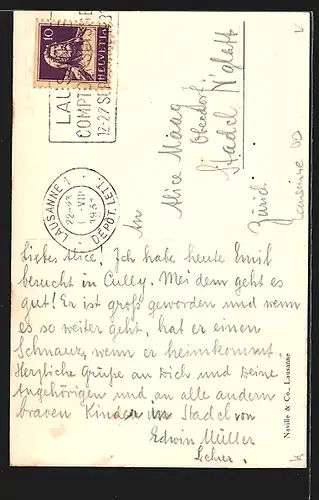 10
HELVETIA
LAUS
COMPT
12-27 SE
LAUSANNE 1
22-23
1 VIII
193
DÉPÔT. LETT.
An
Alice Maag
Oberdorf
Stadel N'glatt
Zürich
Lausanne VD
Liebe Alice. Ich habe heute Emil
besucht in Cully. Mei dem geht es
gut! Er ist groß geworden und wenn
es so weiter geht, hat er einen
Schnauz, wenn er heimkommt.
Herzliche Grüße an Dich und Deine
Angehörigen und an alle andern
braven Kinder in Stadel von
Edwin Müller
Naville & Co., Lausanne